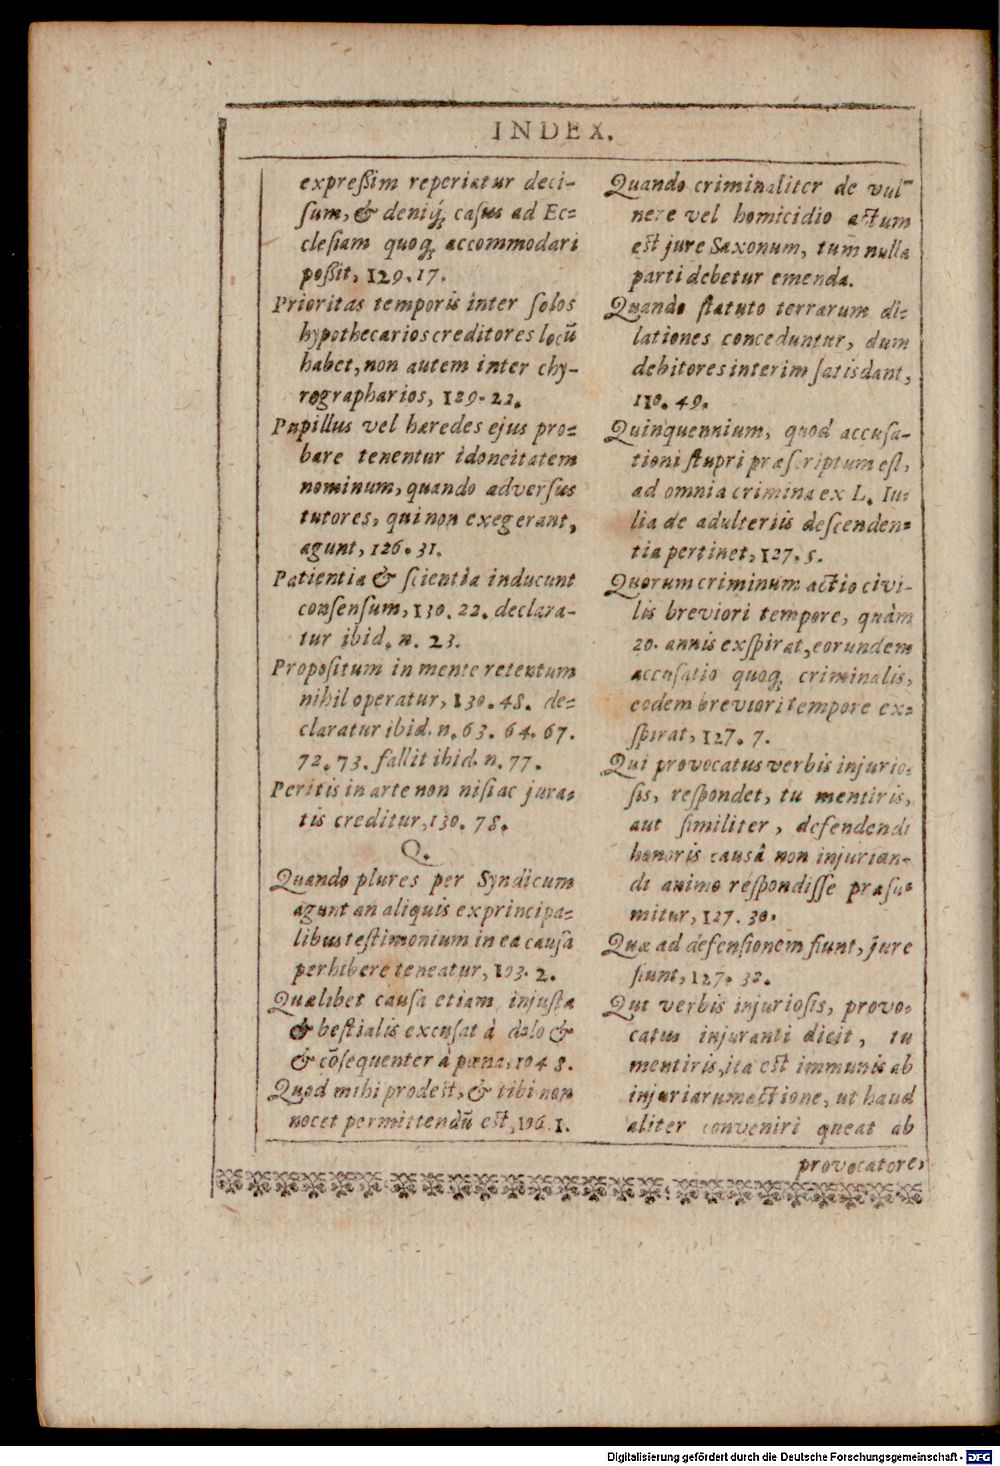 INDEX.
expreſsim reperiatur deci-
ſum, & deniq́ꝫ caſus ad Ec-
cleſiam quoqꝫ accommodari
poſsit, 129. 17.
Prioritas temporis inter ſolos
hypothecarios creditores locū
habet, non autem inter chy-
rographarios, 129. 22.
Pupillus vel hæredes ejus pro-
bare tenentur idoneitatem
nominum, quando adverſus
tutores, qui non exegerant,
agunt, 126. 31.
Patientia & ſcientia inducunt
conſenſum, 130. 22. declara-
tur ibid. n. 23.
Propoſitum in mente retentum
nihil operatur, 130. 48. de-
claratur ibid. n. 63. 64. 67.
72. 73. fallit ibid. n. 77.
Peritis in arte non niſi ac jura-
tis creditur, 130. 78.
Q.
Quando plures per Syndicum
agunt an aliquis ex principa-
libus teſtimonium in ea cauſa
perhibere teneatur, 103. 2.
Quælibet cauſa etiam injuſta
& beſtialis excuſat à dolo &
& cōſequenter à pœna, 104 8.
Quod mihi prodest, & tibi non
nocet permittendū est, 106. 1.
Quando criminaliter de vul-
nere vel homicidio actum
est jure Saxonum, tum nulla
parti debetur emenda.
Quando ſtatuto terrarum di-
lationes conceduntur, dum
debitores interim ſatisdant,
110. 49.
Quinquennium, quod accuſa-
tioni ſtupri præſcriptum eſt,
ad omnia crimina ex L. Iu-
lia de adulteriis deſcenden-
tia pertinet, 127. 5.
Quorum criminum actio civi-
lis breviori tempore, quàm
20. annis exſpirat, eorundem
accuſatio quoqꝫ criminalis,
eodem breviori tempore ex-
ſpirat, 127. 7.
Qui provocatus verbis injurio-
ſis, reſpondet, tu mentiris,
aut ſimiliter, defendendi
honoris causâ non injurian-
di animo reſpondiſſe præſu-
mitur, 127. 30.
Quæ ad defenſionem fiunt, jure
fiunt, 127. 32.
Qui verbis injurioſis, provo-
catus injuranti dicit, tu
mentiris, ita est immunis ab
injuriarum actione, ut haud
aliter conveniri queat ab
provocatore,
Digitalisierung gefördert durch die Deutsche Forschungsgemeinschaft - DFG